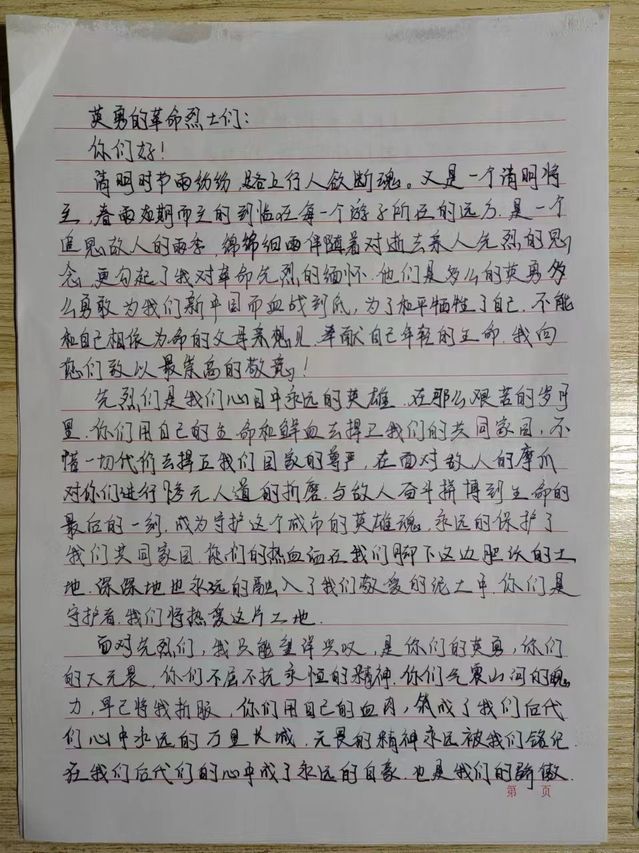 英勇的革命烈士们：
你们好！
清明时节雨纷纷，路上行人欲断魂。又是一个清明将
至，春雨如期而至的到临在每一个游子所在的远方，是一个
追思故人的雨季，绵绵细雨伴随着对逝去亲人先烈的思
念，更勾起了我对革命先烈的缅怀.他们是多么的英勇多
么勇敢为我们新中国而血战到底，为了和平牺牲了自己.不能
和自己相依为命的父母亲想见，奉献自己年轻的生命.我向
您们致以最崇高的敬意！
先烈们是我们心目中永远的英雄.在那么艰苦的岁月
里.你们用自己的生命和鲜血去捍卫我们的共同家园，不
惜一切代价去捍卫我们国家的尊严，在面对敌人的魔爪
对你们进行多无人道的折磨.与敌人奋斗拼博到生命的
最后的一刻.成为守护这个城市的英雄魂.永远的保护了
我们共同家园.您们的热血洒在我们脚下这边肥沃的土
地.深深地也永远的融入了我们敬爱的泥土中.你们是
守护者.我们将热爱这片土地.
面对先烈们，我只能望洋兴叹，是你们的英勇，你们
的大无畏，你们不屈不抗永恒的精神.你们气震山河的魄
力，早已将我折服，你们用自己的血肉，筑成了我们后代
们心中永远的万里长城，无畏的精神永远被我们铭记.
在我们后代们的心中成了永远的自豪.也是我们的骄傲.
第 页